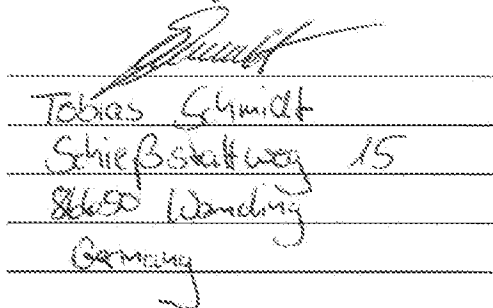 Tobias Schmidt
Schießstattweg 15
86650 Wemding
Germany